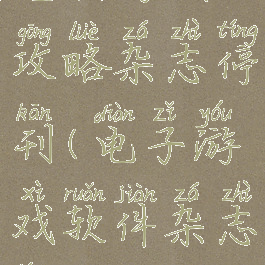 gōng lüè zá zhì tíng
攻略杂志停
kān diàn zǐ yóu
刊(电子游
xì ruǎn jiàn zá zhì
戏软件杂志